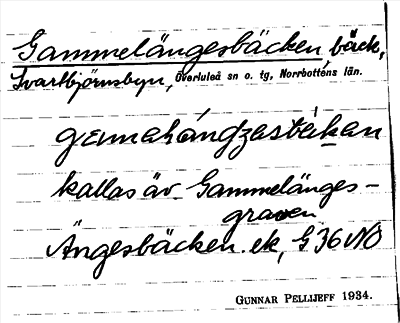 Gammelängesbäcken bäck,
Svartbjörnsbyn, Överluleå sn o. tg, Norrbottens län.
kallas äv. Gammelänges-
graven
Ängesbäcken. ek, G 36 NO
GUNNAR PELLIJEFF 1934.